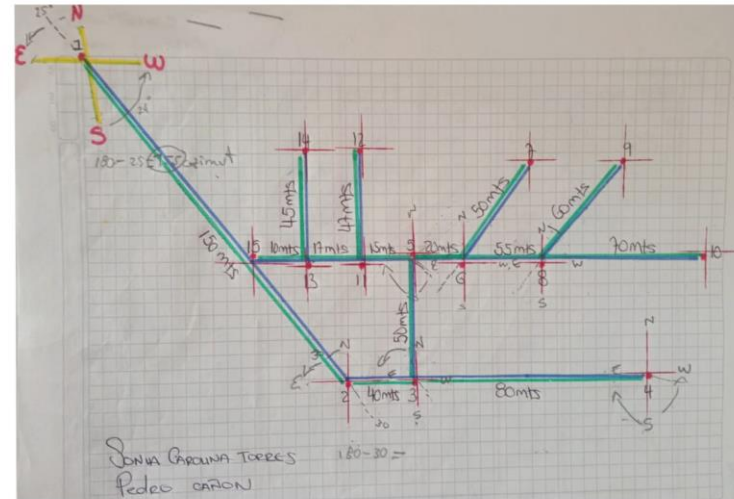 25°
N
E
1
W
S
180-25=155 azimut
14
12
7
9
45mts
47mts
50mts
60mts
150mts
15
10mts
17mts
15mts
5
N
20mts
N
55mts
N
70mts
10
13
11
6
8
E
W
S
S
50mts
N
E
N
2
40mts
3
E
W
S
80mts
4
N
E
W
S
30
SONIA CAROLINA TORRES
180-30=
Pedro CAÑON